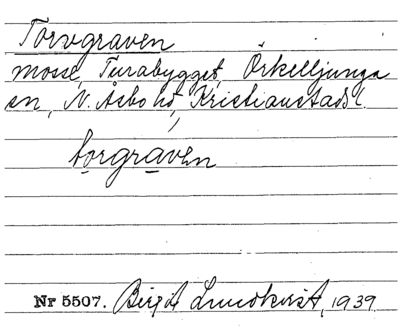 Torvgraven
mosse, Turabygget, Örkelljunga
sn, N. Åsbo hd, Kristianstads l.
torgraven
Nr 5507. Birgit Lundkvist, 1939